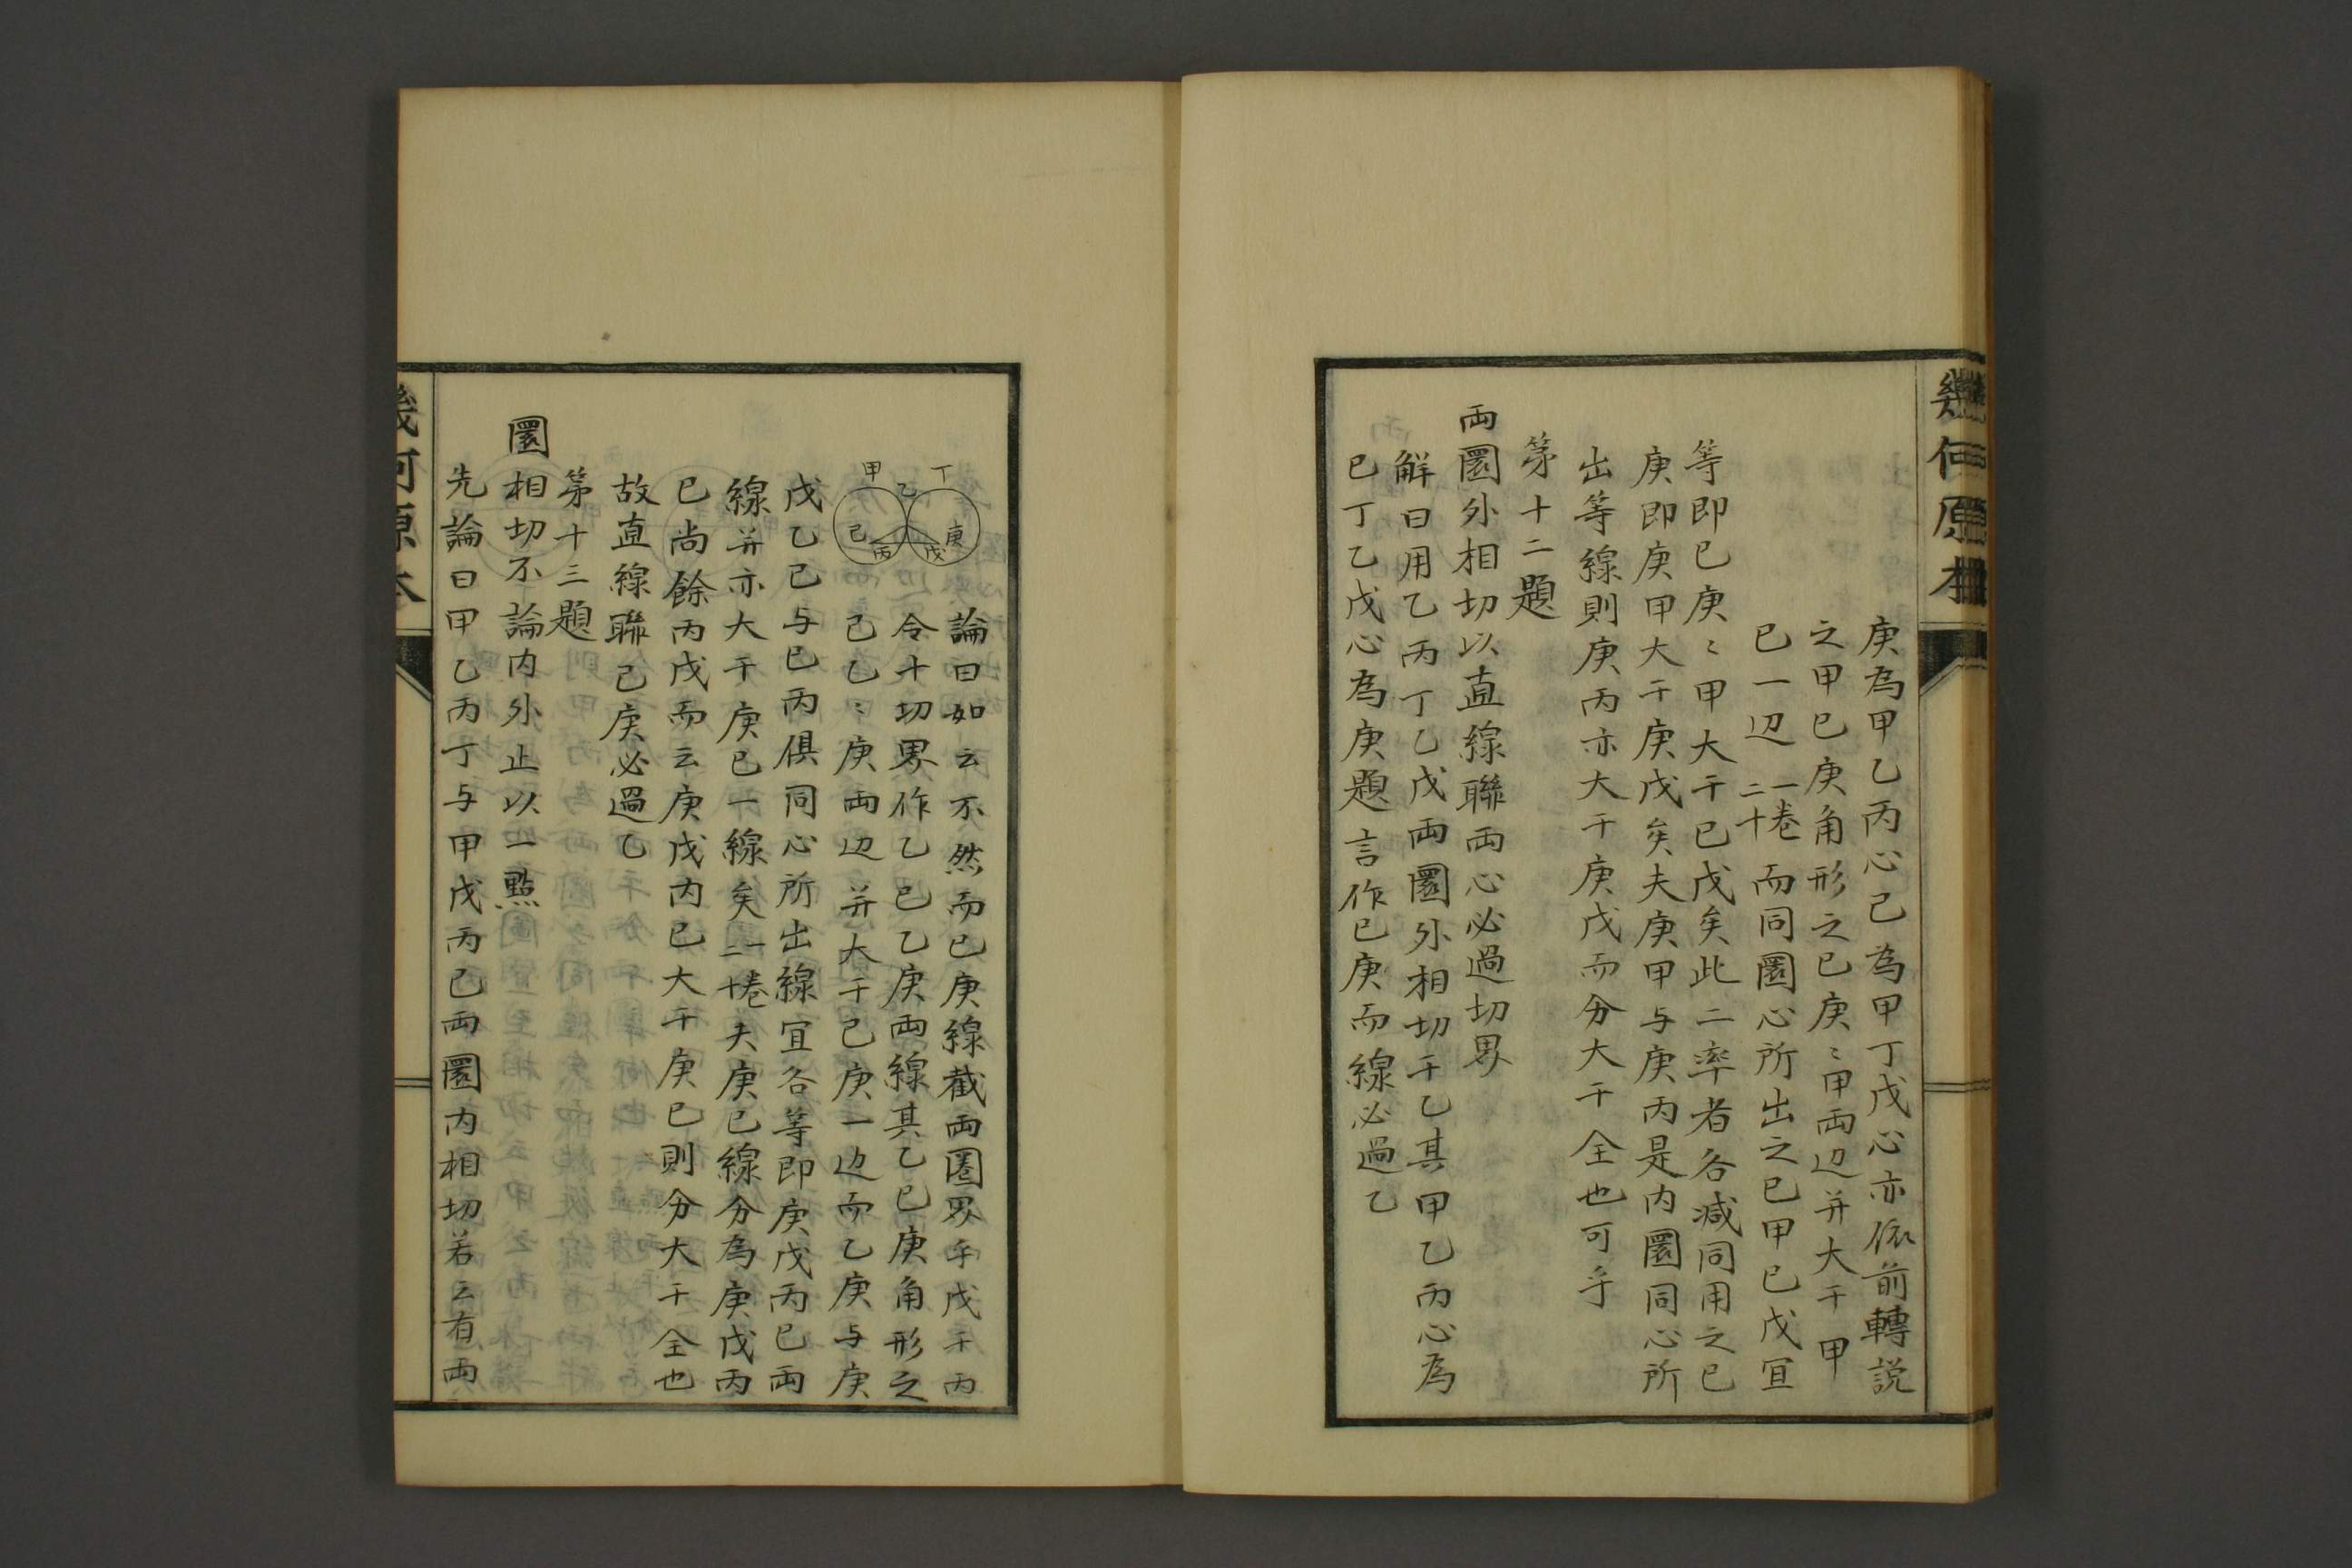 幾何原本
庚為甲乙丙心己為甲丁戊心亦依前轉説
之甲巳庚角形之巳庚〻甲両辺并大于甲
巳一辺一卷二十而同圜心所出之巳甲巳戊宜
等即巳庚〻甲大于巳戊矣此二率者各减同用之巳
庚即庚甲大于庚戊矣夫庚甲与庚丙是内圜同心所
出等線則庚丙亦大于庚戊而分大于全也可乎
第十二題
両圜外相切以直線聯両心必過切界
解曰用乙丙丁乙戊両圜外相切于乙其甲乙丙心為
巳丁乙戊心為庚題言作巳庚而線必過乙
甲 乙 丁
己 丙 戊 庚
論曰如云不然而巳庚線截両圜界乎戊于丙
令十切界作乙巳乙庚両線其乙巳庚角形之
己乙〻庚両辺并大于己庚一边而乙庚与庚
戊乙巳与巳丙俱同心所出線宜各等即庚戊丙巳両
線并亦大于庚巳一線矣一卷二十夫庚巳線分為庚戊丙
巳尚餘丙戊而云庚戊丙巳大于庚巳則分大于全也
故直線聯己庚必過乙
第十三題
圜相切不論内外止以一點
先論曰甲乙丙丁与甲戊丙巳両圜内相切若云有両
幾何原本